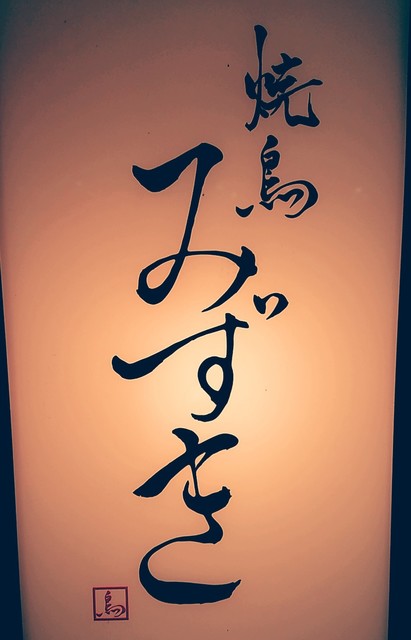 焼鳥
みずき
鳥